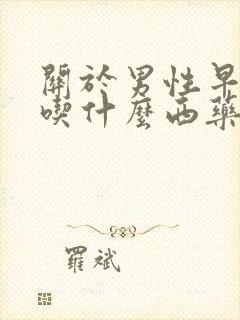 關於男性早
喫什麼西藥
羅斌